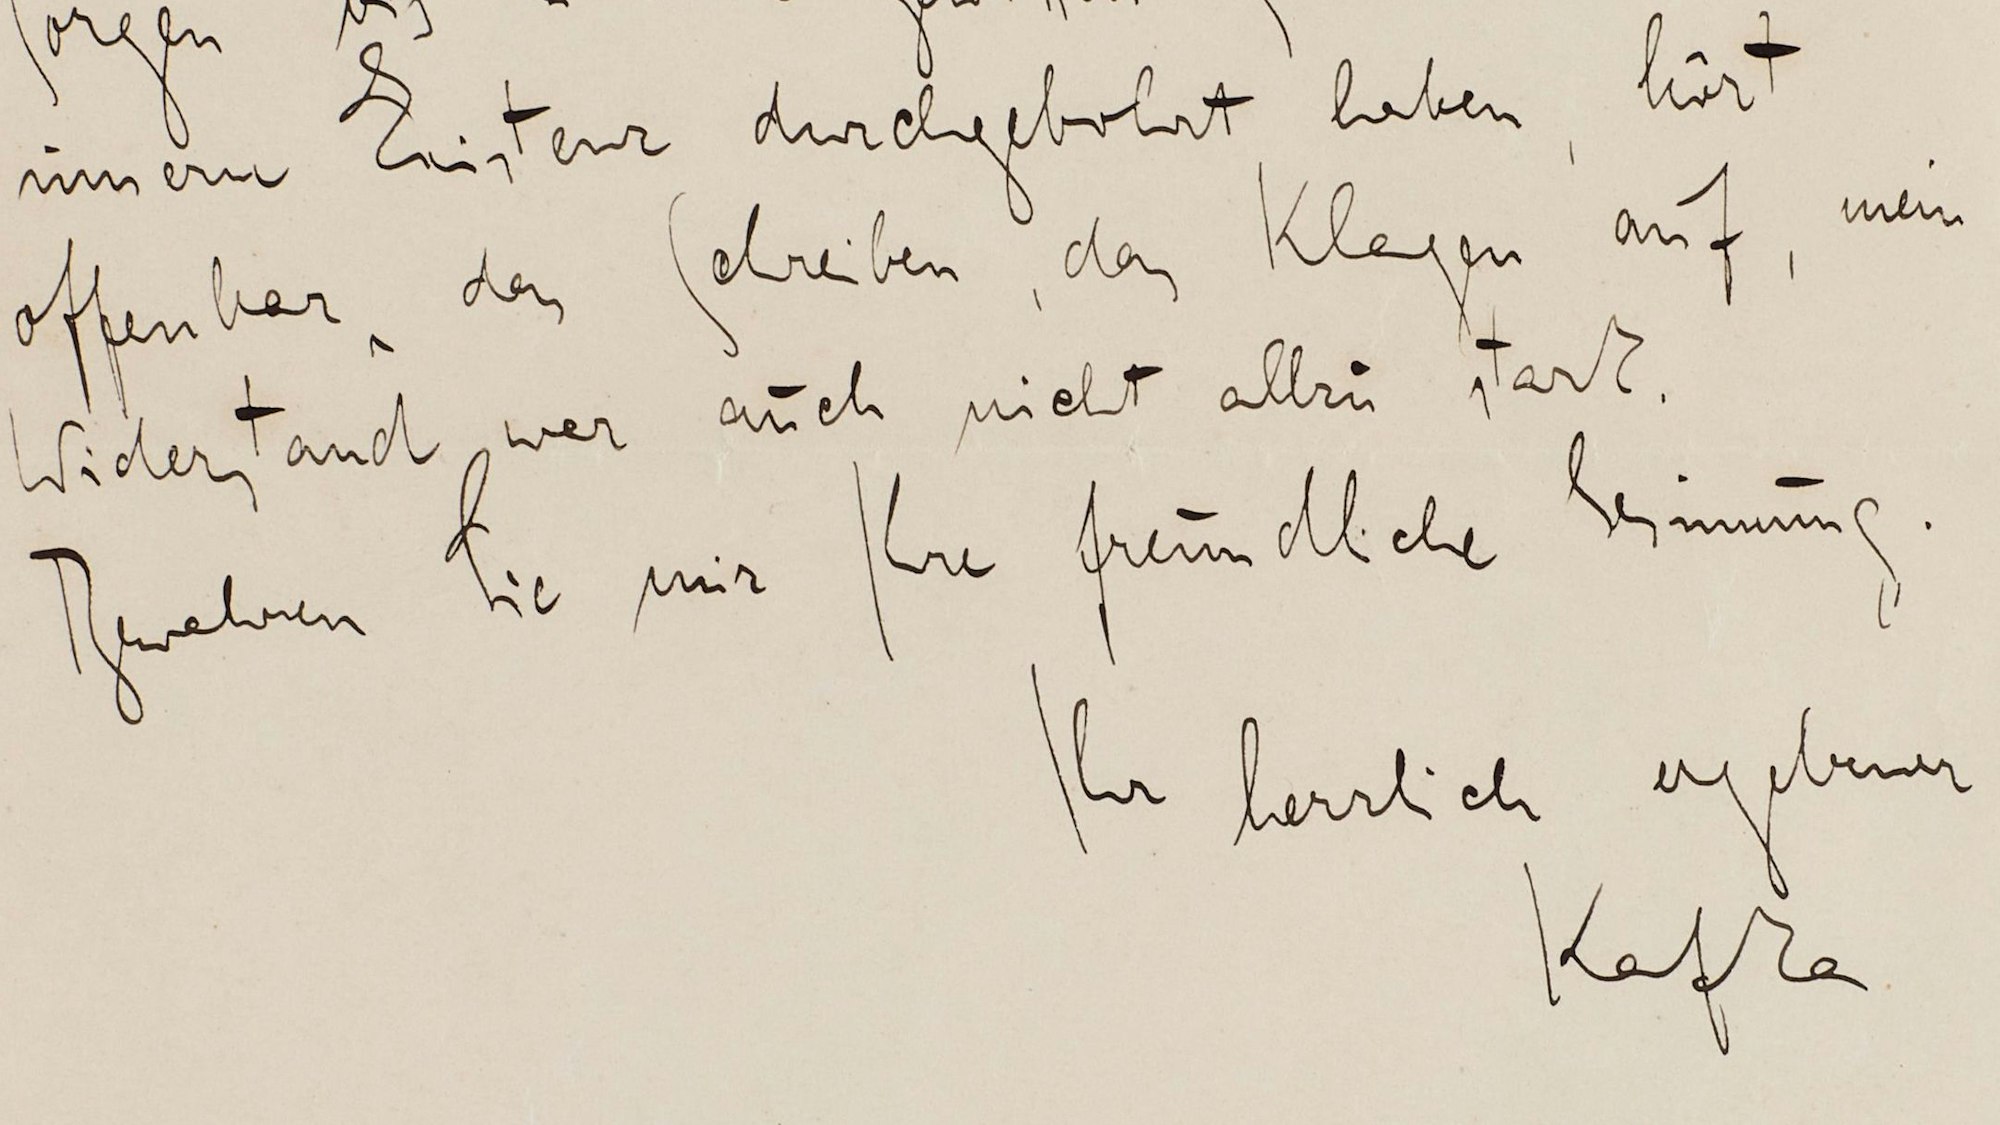 Sorgen bis
innern Existenz durchgebohrt haben, hört
offenbar das Schreiben, das Klagen auf, mein
Widerstand war auch nicht allzu stark.
Bewahren Sie mir Ihre freundliche Gesinnung.
Ihr herzlich ergebener
Kafka